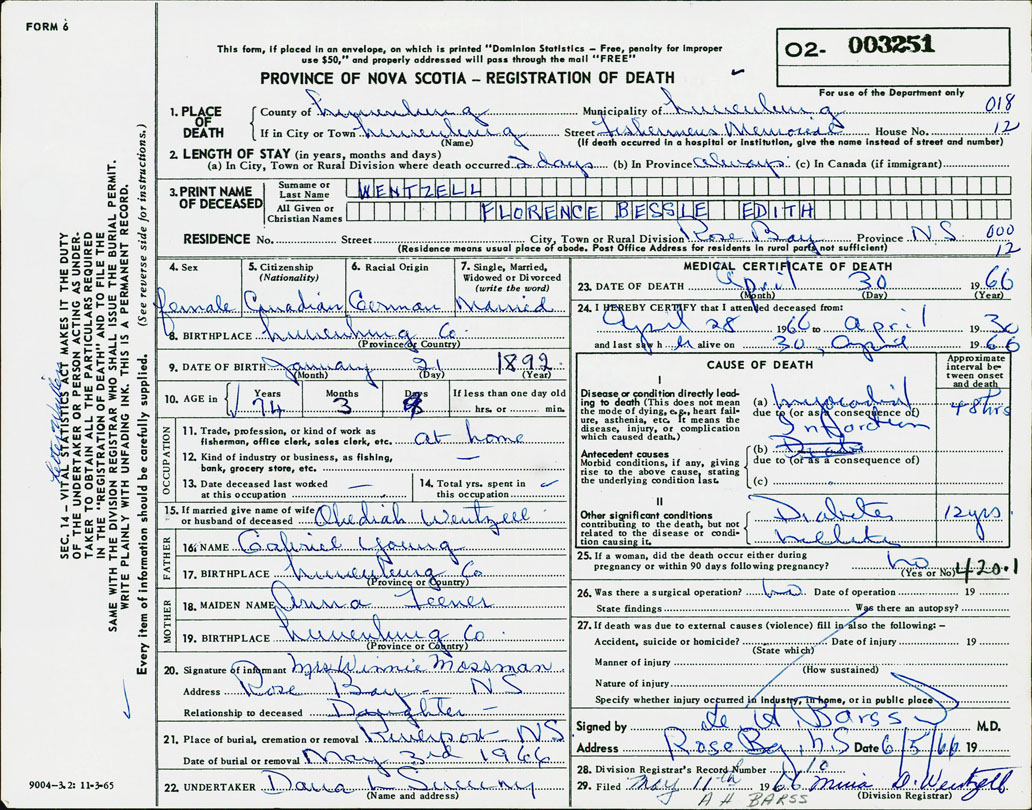 FORM 6
This form, if placed in an envelope, on which is printed "Dominion Statistics – Free, penalty for improper
use $50," and properly addressed will pass through the mail "FREE"
PROVINCE OF NOVA SCOTIA – REGISTRATION OF DEATH
O2- 003251
For use of the Department only
1. PLACE OF DEATH County of Lunenburg Municipality of Lunenburg 018
If in City or Town Lunenburg Street Fishermens Memorial House No. 12
(Name) (If death occurred in a hospital or institution, give the name instead of street and number)
2. LENGTH OF STAY (in years, months and days)
(a) In City, Town or Rural Division where death occurred 2 days (b) In Province always (c) In Canada (if immigrant)
3. PRINT NAME OF DECEASED Surname or Last Name WENTZELL
All Given or Christian Names FLORENCE BESSLE EDITH
RESIDENCE No. Street City, Town or Rural Division Rose Bay Province NS 000
(Residence means usual place of abode. Post Office Address for residents in rural parts not sufficient) 12
4. Sex female
5. Citizenship (Nationality) Canadian
6. Racial Origin German
7. Single, Married, Widowed or Divorced (write the word) Married
8. BIRTHPLACE Lunenburg Co.
(Province or Country)
9. DATE OF BIRTH January 21 1892
(Month) (Day) (Year)
10. AGE in Years 74 Months 3 Days If less than one day old hrs. or min.
OCCUPATION
11. Trade, profession, or kind of work as fisherman, office clerk, sales clerk, etc. at home
12. Kind of industry or business, as fishing, bank, grocery store, etc. —
13. Date deceased last worked at this occupation —
14. Total yrs. spent in this occupation
15. If married give name of wife or husband of deceased Obediah Wentzell
FATHER
16. NAME Gabriel Young
17. BIRTHPLACE Lunenburg Co
(Province or Country)
MOTHER
18. MAIDEN NAME Anna
19. BIRTHPLACE Lunenburg Co.
(Province or Country)
20. Signature of informant Mrs Winnie Mossman
Address Rose Bay - NS
Relationship to deceased Daughter -
21. Place of burial, cremation or removal NS
Date of burial or removal May 3rd 1966
22. UNDERTAKER Dana L Sweeny
(Name and address)
MEDICAL CERTIFICATE OF DEATH
23. DATE OF DEATH April 30 1966
(Month) (Day) (Year)
24. I HEREBY CERTIFY that I attended deceased from:
April 28 1966 to April 1930
and last saw h alive on 30, April 1966
CAUSE OF DEATH
Approximate interval between onset and death
I
Disease or condition directly leading to death (This does not mean the mode of dying, e.g., heart failure, asthenia, etc. It means the disease, injury, or complication which caused death.)
(a) Myocardial 48 hrs
due to (or as a consequence of)
Infarction
Antecedent causes
Morbid conditions, if any, giving rise to the above cause, stating the underlying condition last.
(b)
due to (or as a consequence of)
(c)
II
Other significant conditions contributing to the death, but not related to the disease or condition causing it.
Diabetes 12 yrs
Mellitus
25. If a woman, did the death occur either during pregnancy or within 90 days following pregnancy? No
(Yes or No) 420.1
26. Was there a surgical operation? No Date of operation 19
State findings Was there an autopsy?
27. If death was due to external causes (violence) fill in also the following: –
Accident, suicide or homicide? Date of injury 19
(State which)
Manner of injury
(How sustained)
Nature of injury
Specify whether injury occurred in industry, in home, or in public place
Signed by H. A. Barss M.D.
Address Rose Bay, N.S Date 6/5/66 19
28. Division Registrar's Record Number 10
29. Filed May 11th 1966 Minia D. Wentzell
(Division Registrar)
A H BARSS
SEC. 14 – VITAL STATISTICS ACT MAKES IT THE DUTY
OF THE UNDERTAKER OR PERSON ACTING AS UNDER-
TAKER TO OBTAIN ALL THE PARTICULARS REQUIRED
IN THE "REGISTRATION OF DEATH" AND TO FILE THE
SAME WITH THE DIVISION REGISTRAR WHO SHALL ISSUE THE BURIAL PERMIT.
WRITE PLAINLY WITH UNFADING INK. THIS IS A PERMANENT RECORD.
Every item of information should be carefully supplied. (See reverse side for instructions.)
9004-3.2: 11-3-65